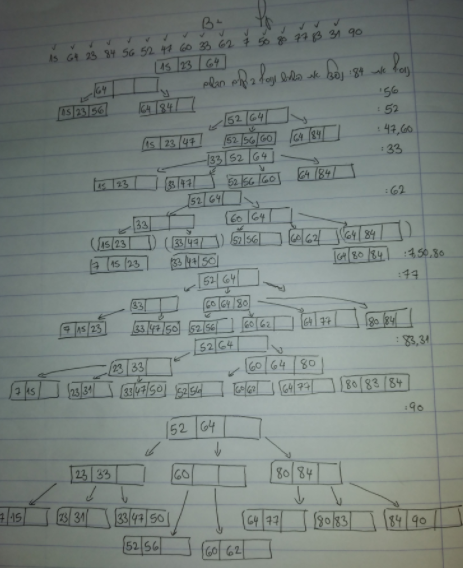 B-
15 64 23 84 56 52 47 60 33 62 7 50 80 77 83 31 90
15 23 64
:84
64
:56
15 23 56 64 84
:52
52 64
15 23 47 52 56 60 64 84
:47,60
33 52 64
:33
15 23 33 47 52 56 60 64 84
52 64
:62
33 60 64
15 23 33 47 52 56 60 62 64 84
7 15 23 33 47 50 64 80 84
:7 50,80
52 64
:77
33 60 64 80
7 15 23 33 47 50 52 56 60 62 64 77 80 84
52 64
:83,31
23 33 60 64 80
7 15 23 31 33 47 50 52 56 60 62 64 77 80 83 84
:90
52 64
23 33 60 80 84
7 15 23 31 33 47 50 64 77 80 83 84 90
52 56 60 62